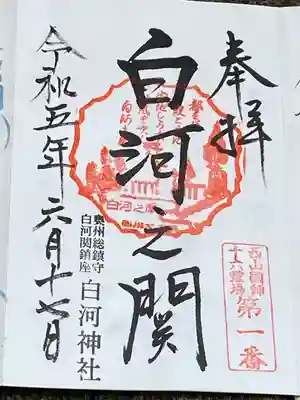 奉拝
西山国師
十六霊場
第一番
白河之関
白河之関
奥州総鎮守
白河関鎮座
白河神社
令和五年六月十七日